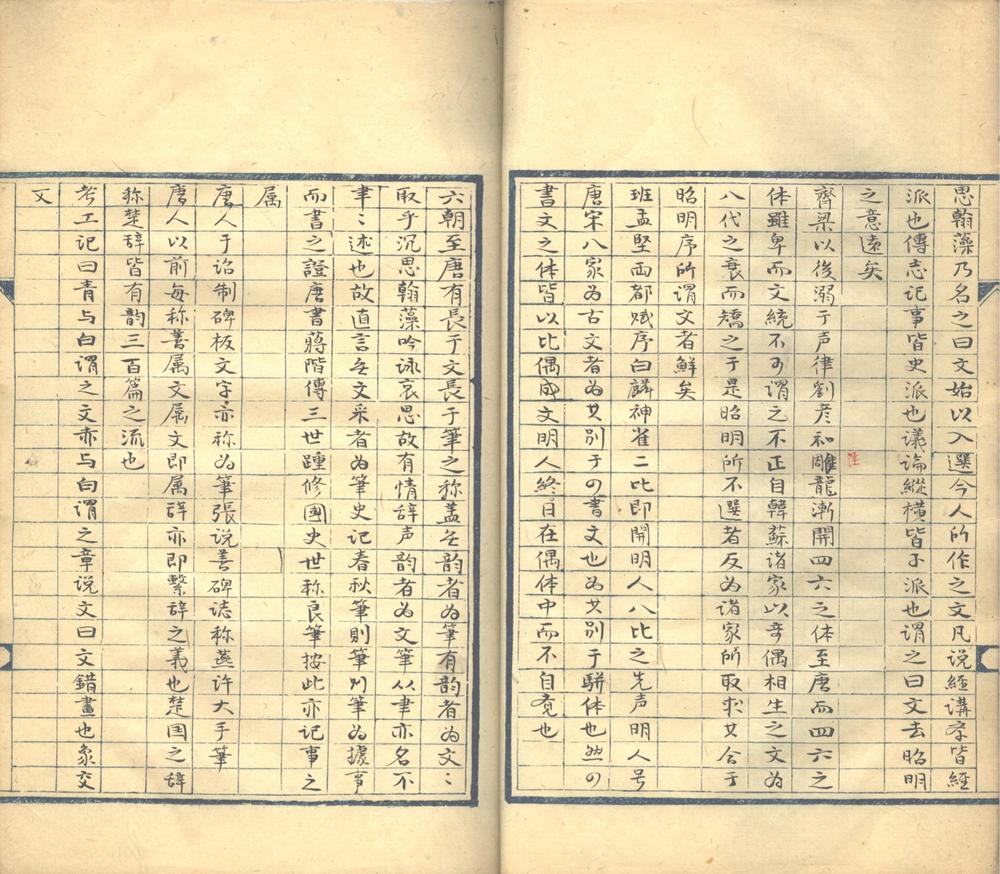 思翰藻乃名之曰文始以入選今人所作之文凡说經講学皆經
派也傳志记事皆史派也议论縱横皆子派也谓之曰文去昭明
之意遠矣
齊梁以後溺于声律劉彦和雕龍漸開四六之体至唐而四六之
体雖卑而文統不可谓之不正自韓蘇诸家以奇偶相生之文为
八代之衰而矯之于是昭明所不選者反为诸家所取求其合于
昭明序所谓文者鮮矣
班孟堅两都赋序白麟神雀二比即開明人八比之先声明人号
唐宋八家为古文者为其别于四書文也为其别于駢体也然四
書文之体皆以比偶成文明人終日在偶体中而不自覓也
注
六朝至唐有長于文長于筆之称盖无韵者为筆有韵者为文〻
取乎沉思翰藻吟咏哀思故有情辞声韵者为文筆从聿亦名不
聿〻述也故直言无文采者为筆史记春秋筆則筆刘筆为據事
而書之證唐書蒋階傳三世踵修國史世称良筆按此亦记事之
属
唐人于诏制碑板文字亦称为筆張说善碑誌称燕许大手筆
唐人以前每称善属文属文即属辞亦即繫辞之義也楚国之辞
称楚辞皆有韵三百篇之流也
考工记曰青与白谓之文赤与白谓之章说文曰文錯畫也象交
文